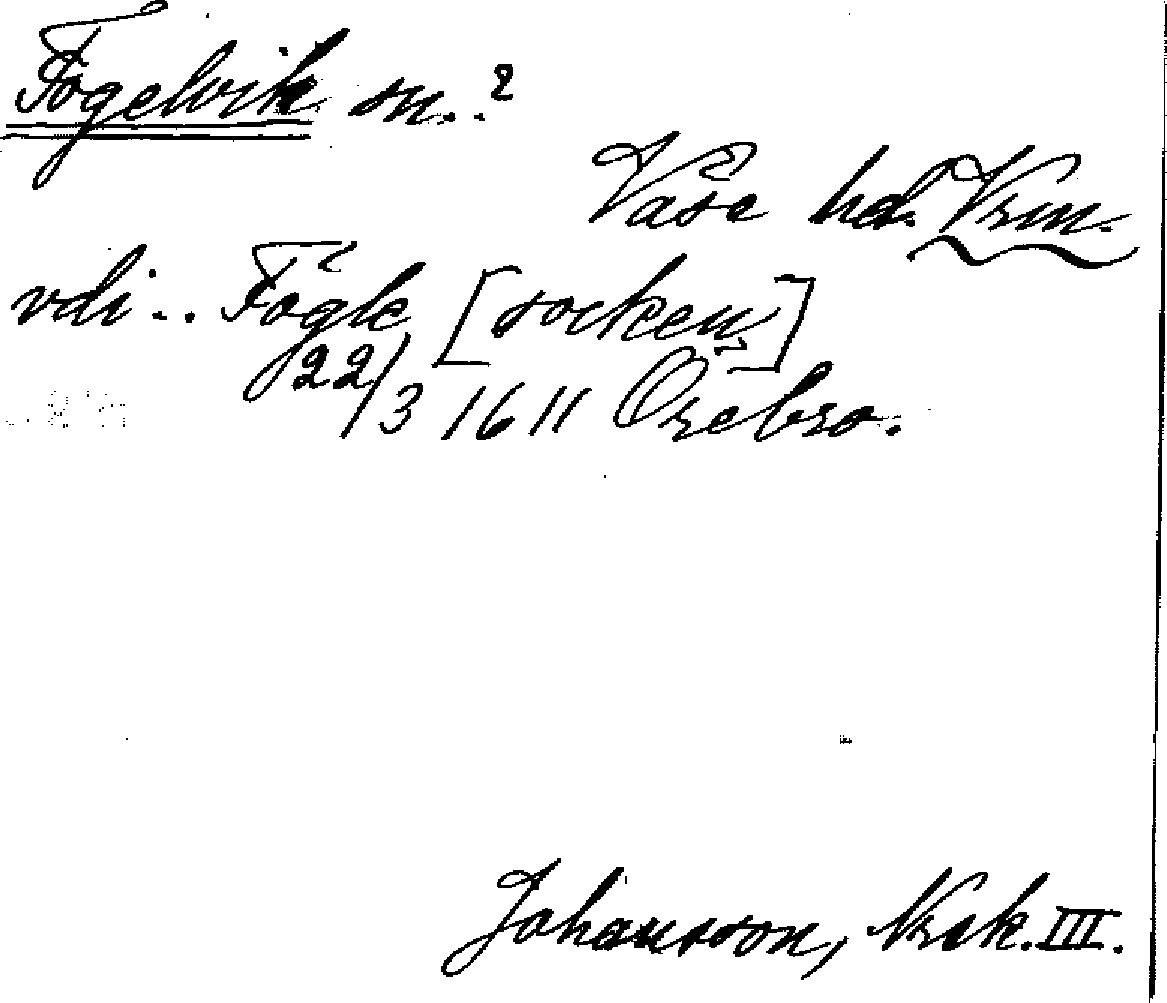 Fogelvik sn.?
Väse hd. Vrm.
vdi .. Fögle [socken]
22/3 1611 Örebro.
Johansson, Nrik. III.